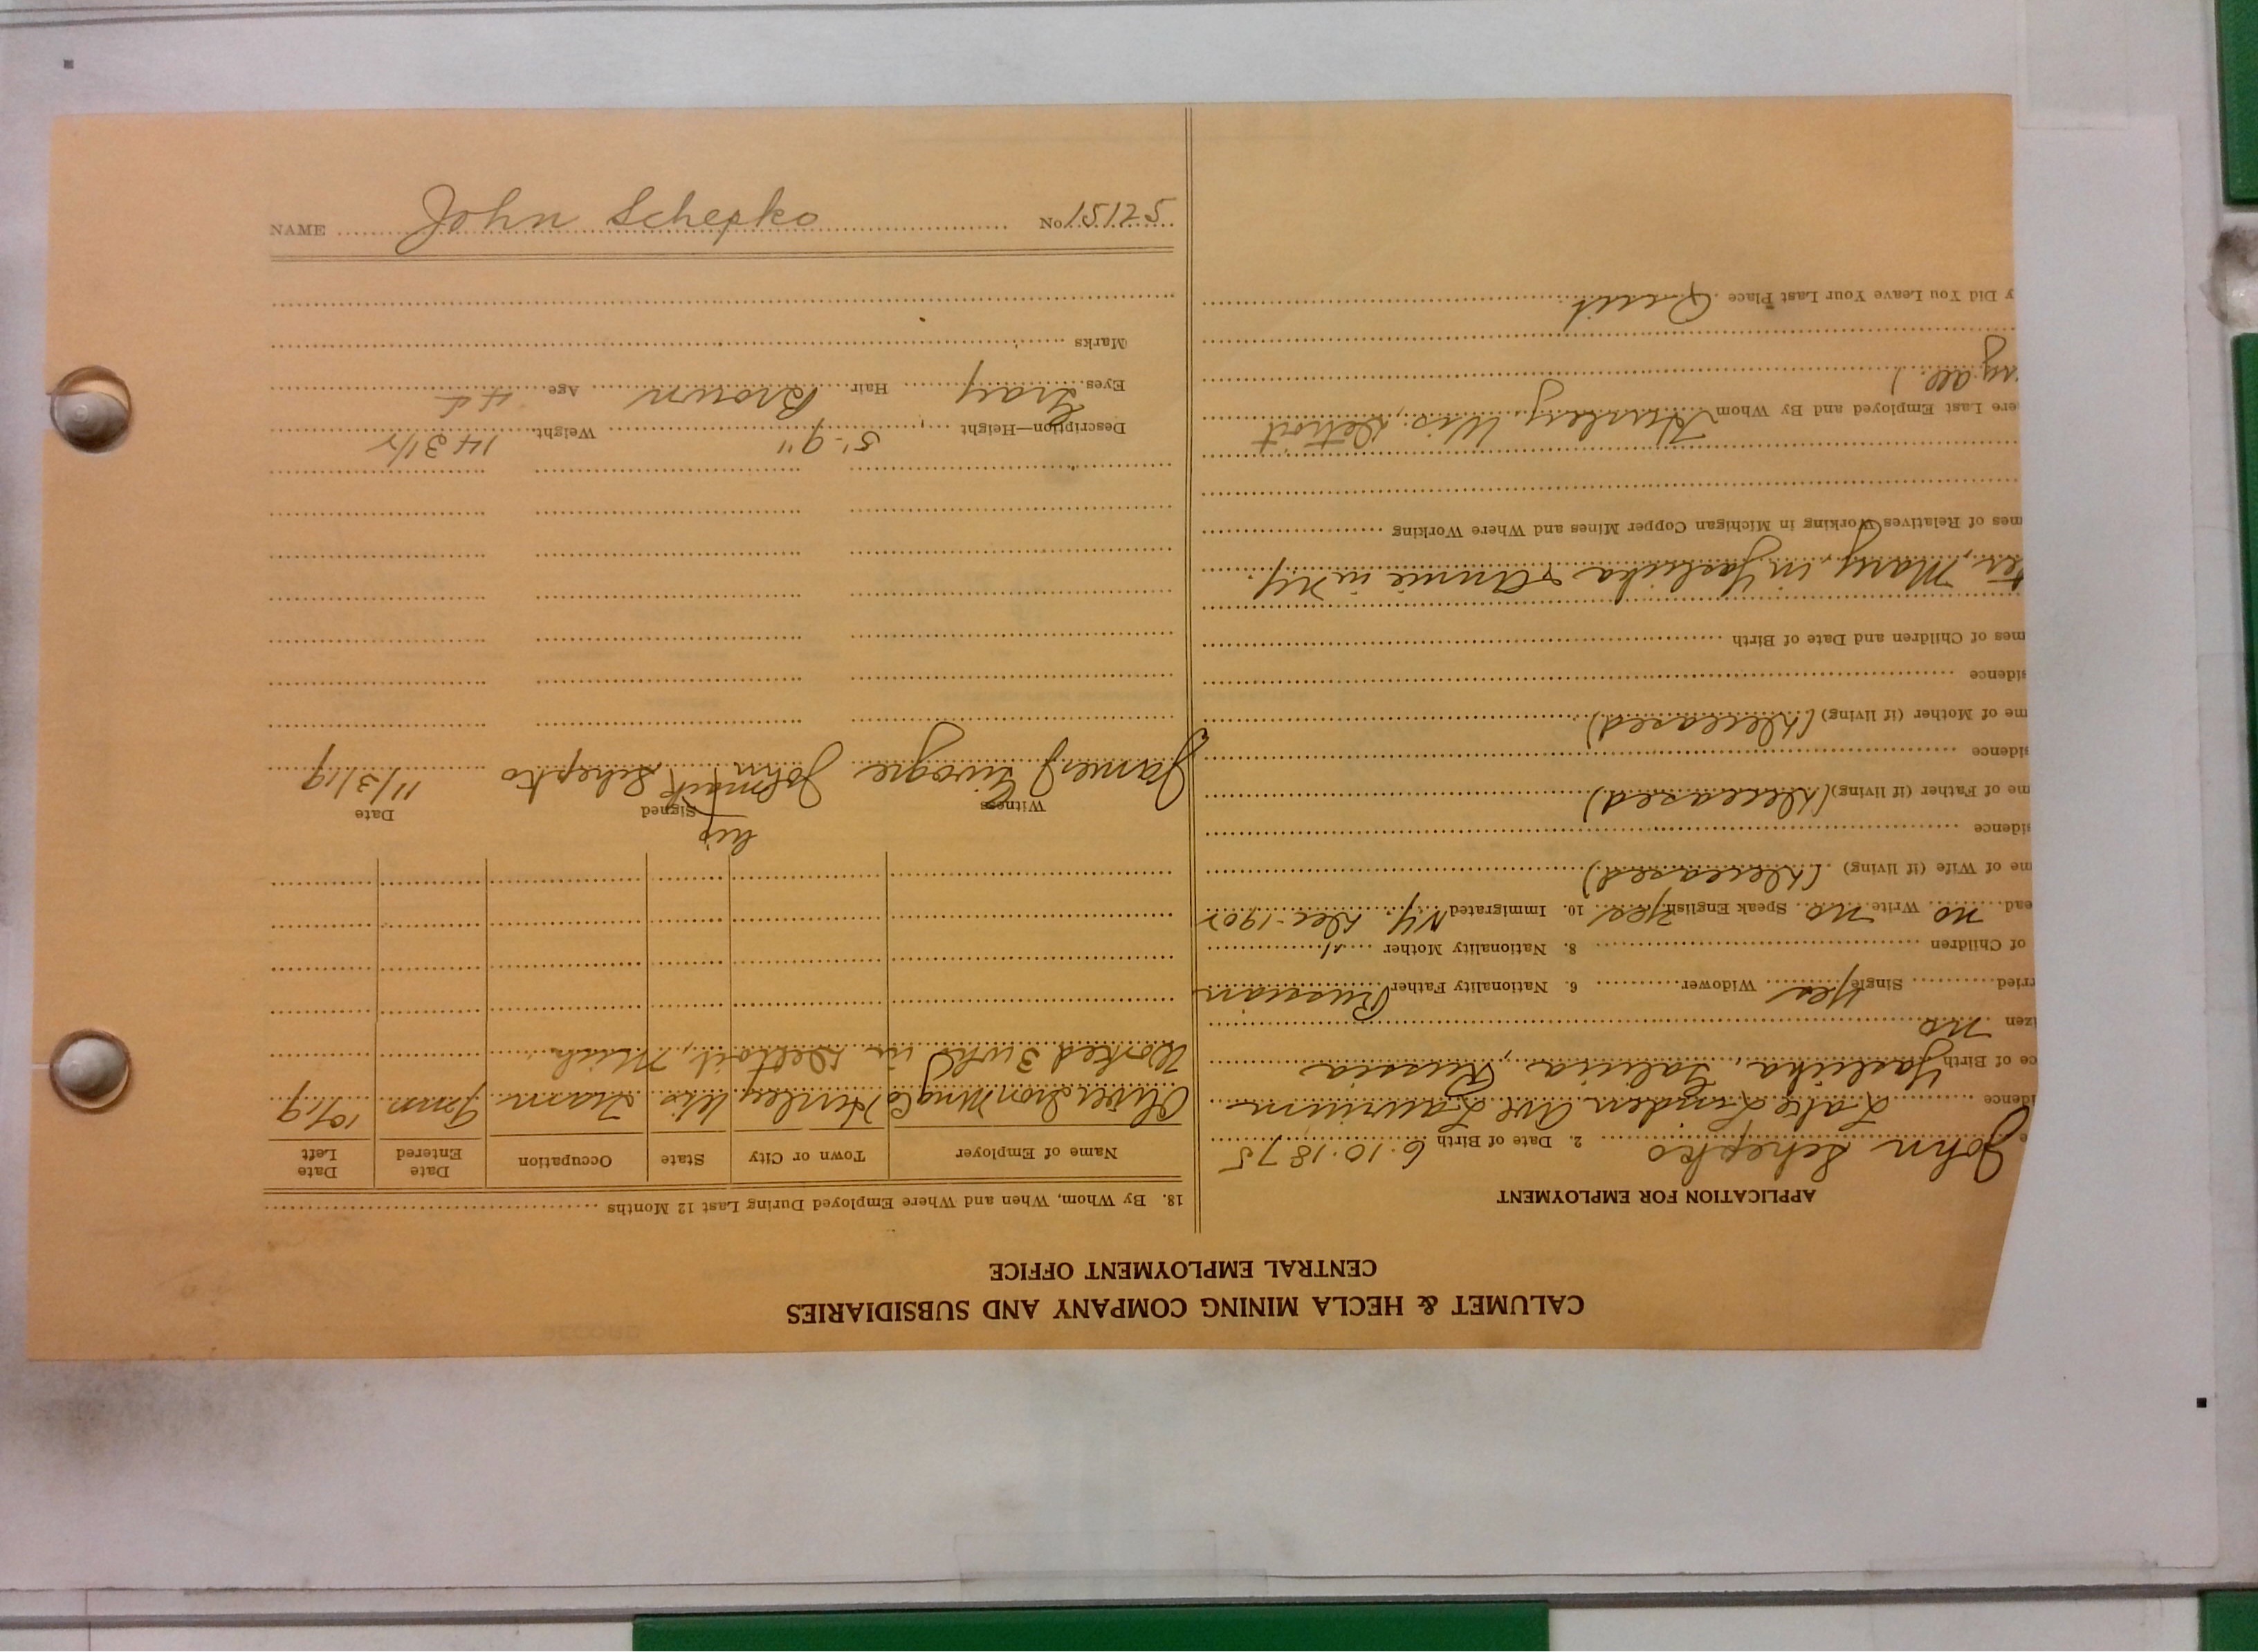 NAME John Schepko No 15125
CALUMET & HECLA MINING COMPANY AND SUBSIDIARIES
CENTRAL EMPLOYMENT OFFICE
APPLICATION FOR EMPLOYMENT
e John Schepko 2. Date of Birth 6.10.1875
idence Lake Linden Ave Laurium
ce of Birth Yaslicka, Galicia, Russia
izen no
rried Single Yes Widower 6. Nationality Father Russian
of Children 8. Nationality Mother "
ead no Write no Speak English Yes 10. Immigrated NY. Dec-1902
me of Wife (if living) (Deceased)
sidence
me of Father (if living) (Deceased)
sidence
me of Mother (if living) (Deceased)
sidence
mes of Children and Date of Birth
ter, Mary, in Yaslicka & Annie in NY.
mes of Relatives Working in Michigan Copper Mines and Where Working
ere Last Employed and By Whom Hurley, Wis. Detroit
y Did You Leave Your Last Place Quit
18. By Whom, When and Where Employed During Last 12 Months
Name of Employer Town or City State Occupation Date Entered Date Left
Oliver Iron Mng Co Hurley Wis Tram 10/19
Worked 3 wks in Detroit, Mich.
Witness Signed Date
his
James J John mark Schepko 11/3/19
Description—Height 5'-9" Weight 143 1/2
Eyes Gray Hair Brown Age 44
Marks